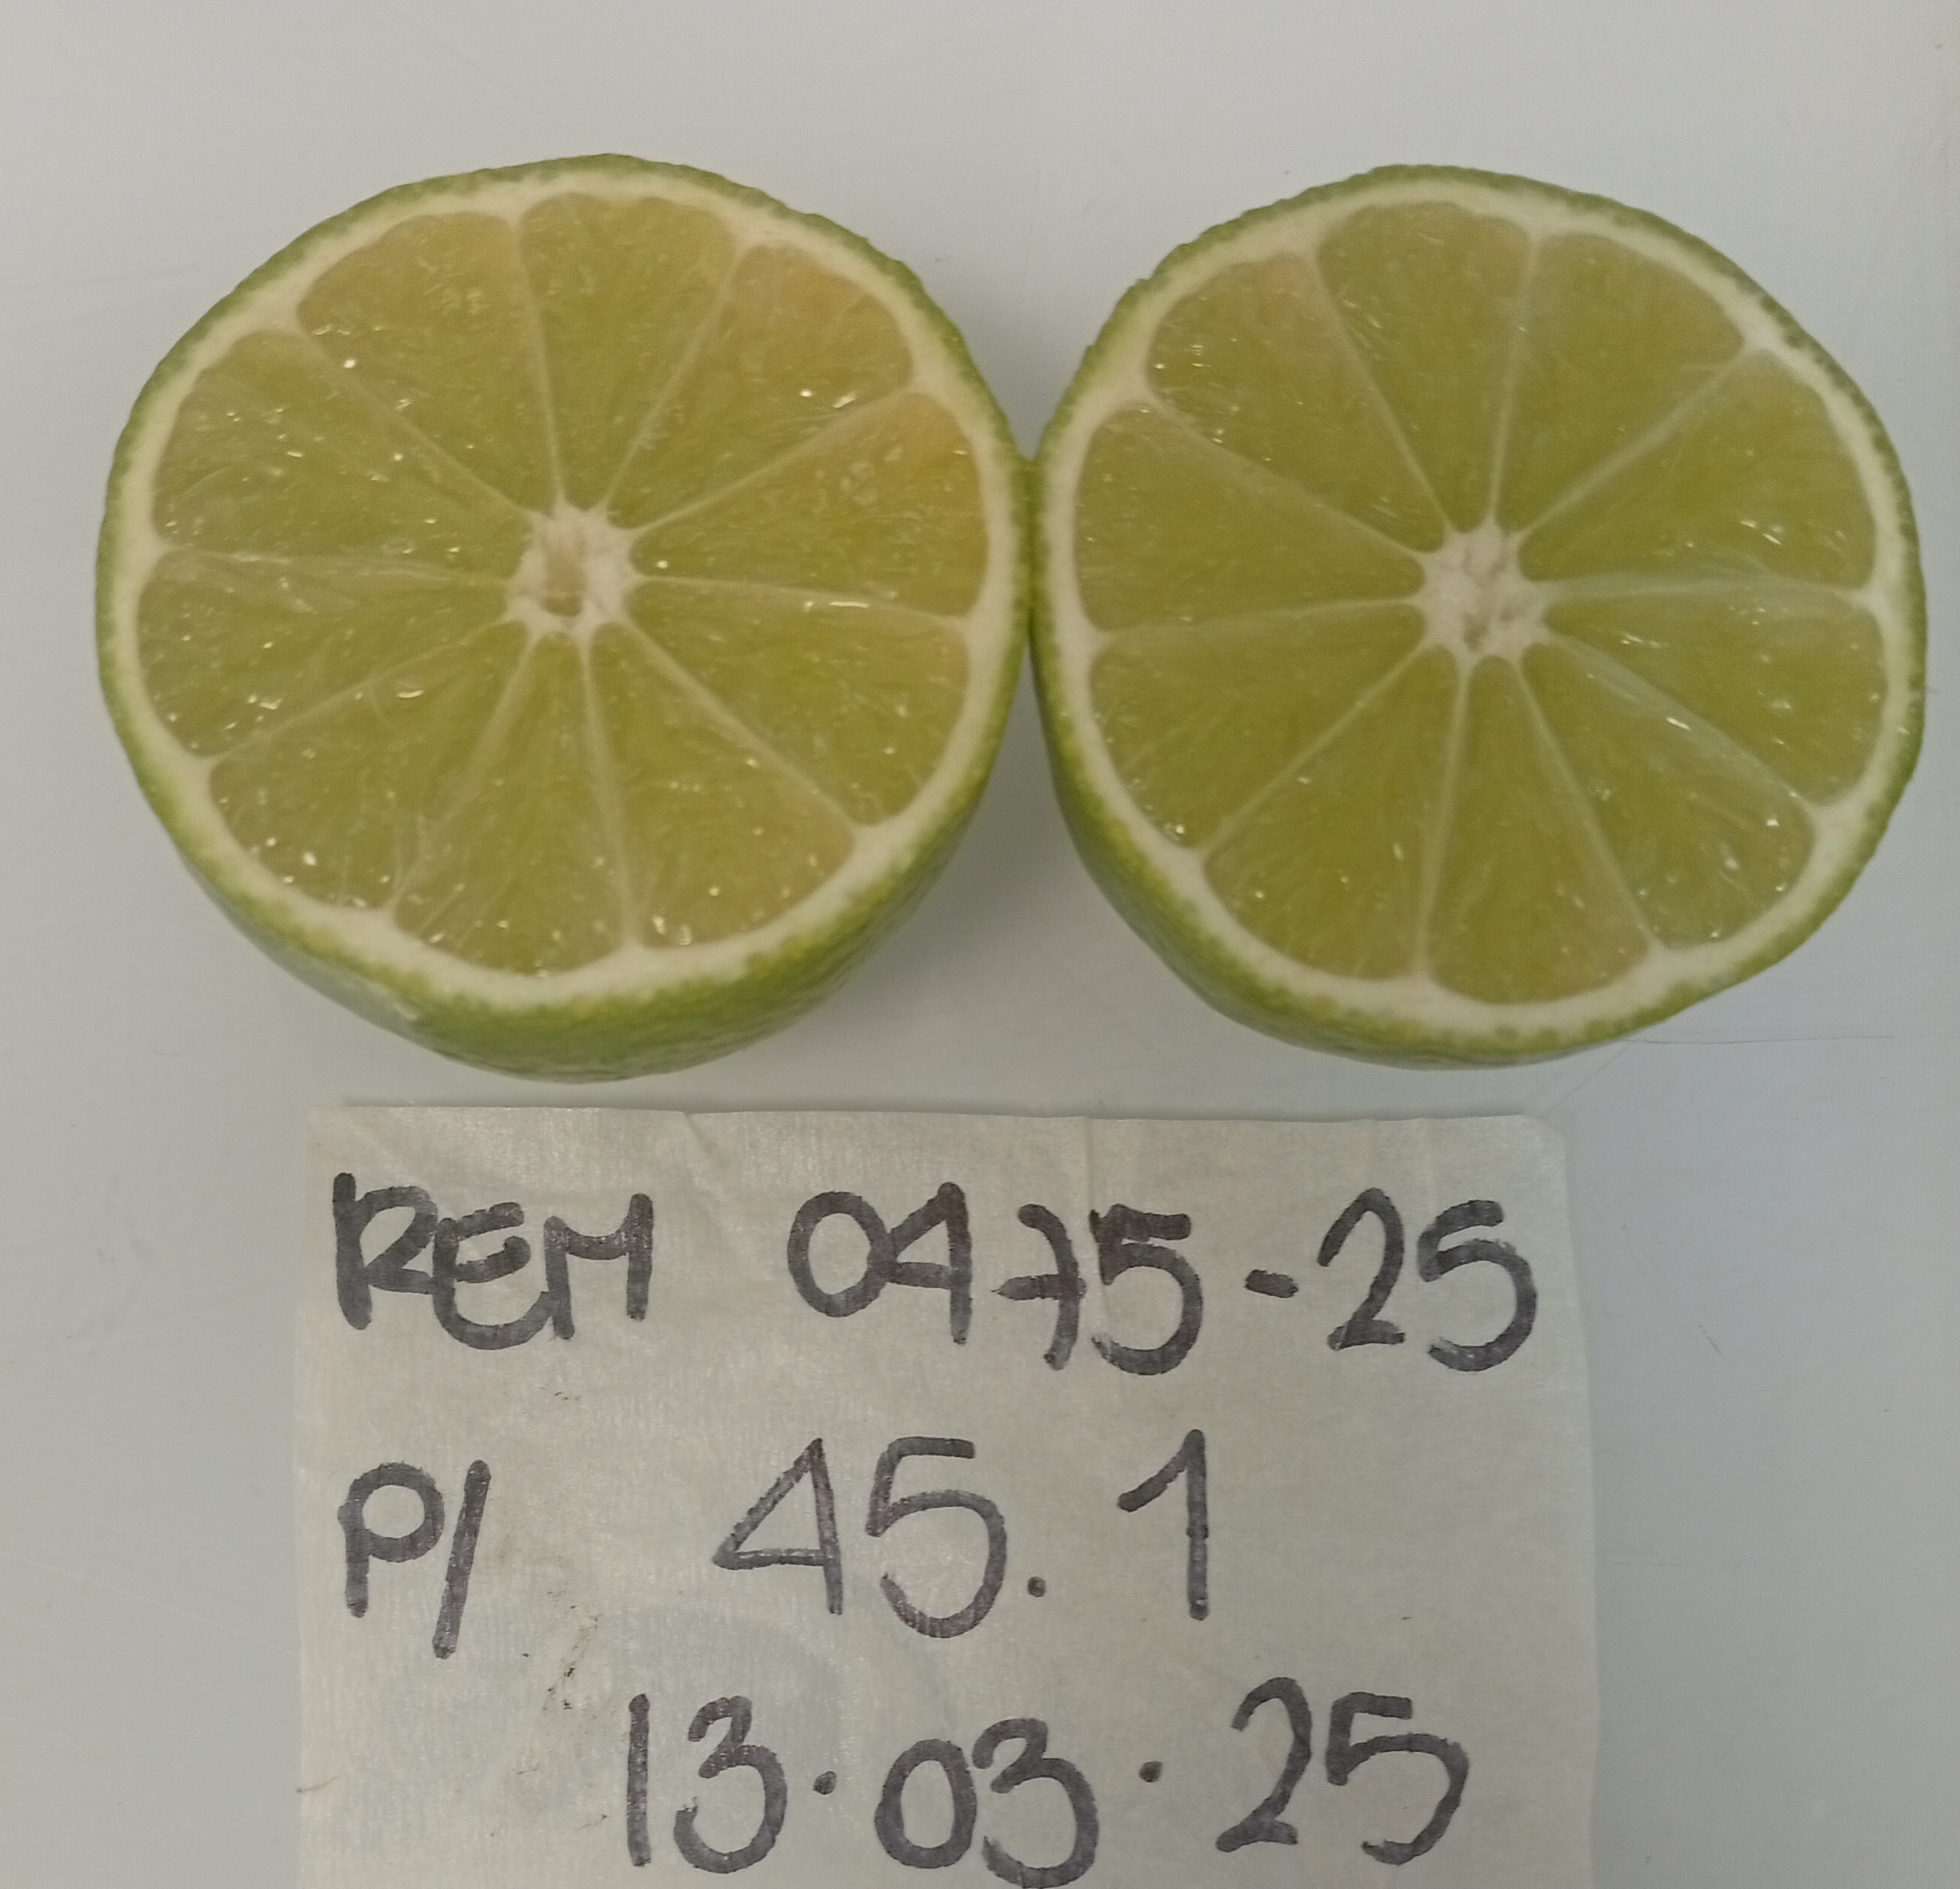 REM 0475-25
P/ 45.1
13.03.25